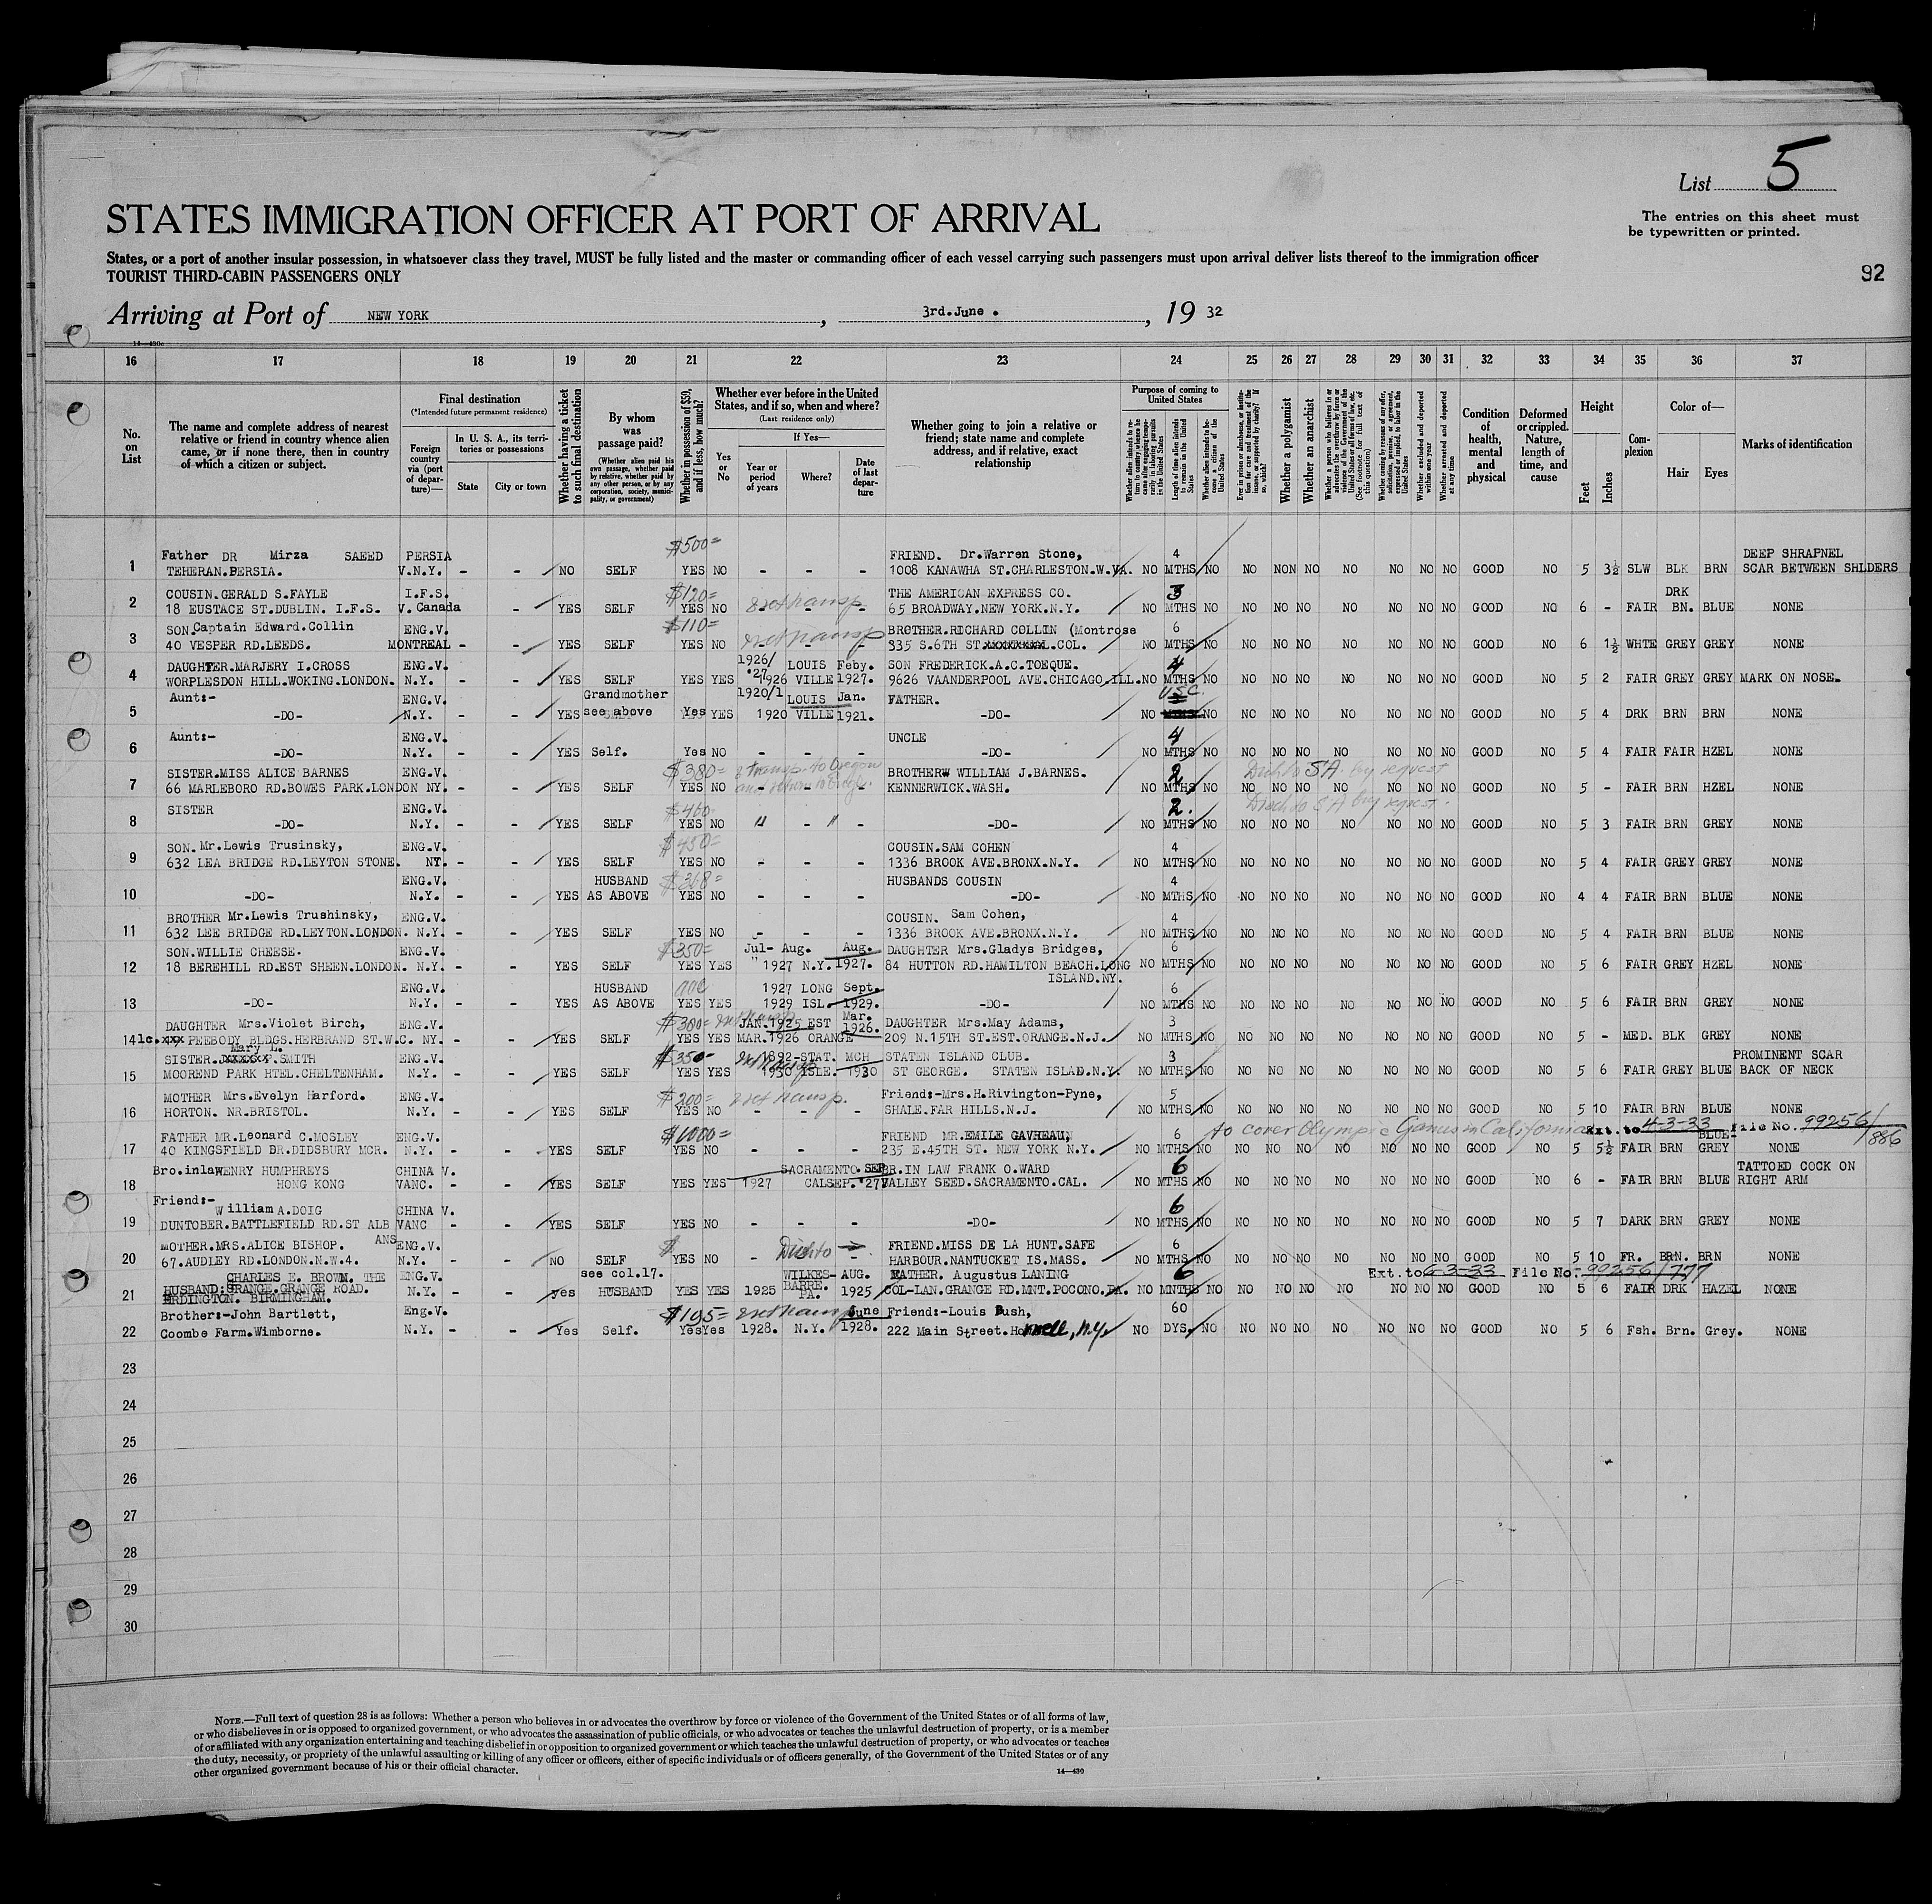 List 5
STATES IMMIGRATION OFFICER AT PORT OF ARRIVAL
The entries on this sheet must
be typewritten or printed.
States, or a port of another insular possession, in whatsoever class they travel, MUST be fully listed and the master or commanding officer of each vessel carrying such passengers must upon arrival deliver lists thereof to the immigration officer
TOURIST THIRD-CABIN PASSENGERS ONLY
92
Arriving at Port of NEW YORK, 3rd.June., 19 32
14—430c
16 17 18 19 20 21 22 23 24 25 26 27 28 29 30 31 32 33 34 35 36 37
No. on List
The name and complete address of nearest relative or friend in country whence alien came, or if none there, then in country of which a citizen or subject.
Final destination
(*Intended future permanent residence)
Foreign country via (port of departure)—
In U. S. A., its territories or possessions
State
City or town
Whether having a ticket to such final destination
By whom was passage paid?
(Whether alien paid his own passage, whether paid by relative, whether paid by any other person, or by any corporation, society, municipality, or government)
Whether in possession of $50, and if less, how much?
Whether ever before in the United States, and if so, when and where?
(Last residence only)
Yes or No
If Yes—
Year or period of years
Where?
Date of last departure
Whether going to join a relative or friend; state name and complete address, and if relative, exact relationship
Purpose of coming to United States
Whether alien intends to return to country whence he came after engaging temporarily in laboring pursuits in the United States
Length of time alien intends to remain in the United States
Whether alien intends to become a citizen of the United States
Ever in prison or almshouse, or institution for care and treatment of the insane, or supported by charity? If so, which?
Whether a polygamist
Whether an anarchist
Whether a person who believes in or advocates the overthrow by force or violence of the Government of the United States or all forms of law, etc. (See footnote for full text of this question)
Whether coming by reasons of any offer, solicitation, promise, or agreement, expressed or implied, to labor in the United States
Whether excluded and deported within one year
Whether arrested and deported at any time
Condition of health, mental and physical
Deformed or crippled. Nature, length of time, and cause
Height
Feet
Inches
Complexion
Color of—
Hair
Eyes
Marks of identification
$500=
Father DR Mirza SAEED PERSIA FRIEND. Dr.Warren Stone, 4 DEEP SHRAPNEL
1 TEHERAN.PERSIA. V.N.Y. - - NO SELF YES NO - - - 1008 KANAWHA ST.CHARLESTON.W.VA. NO MTHS NO NO NON NO NO NO NO NO GOOD NO 5 3½ SLW BLK BRN SCAR BETWEEN SHLDERS
COUSIN.GERALD S.FAYLE I.F.S. $120= THE AMERICAN EXPRESS CO. 3 DRK
2 18 EUSTACE ST.DUBLIN. I.F.S. V.Canada - YES SELF YES NO 65 BROADWAY.NEW YORK.N.Y. NO MTHS NO NO NO NO NO NO NO NO GOOD NO 6 - FAIR BN. BLUE NONE
SON.Captain Edward.Collin ENG.V. $110= BROTHER.RICHARD COLLIN (Montrose 6
3 40 VESPER RD.LEEDS. MONTREAL - - YES SELF YES NO - - - 335 S.6TH ST.xxxxxxxx.COL. NO MTHS NO NO NO NO NO NO NO NO GOOD NO 6 1½ WHTE GREY GREY NONE
DAUGHTER.MARJERY I.CROSS ENG.V. 1926/'27 LOUIS Feby. SON FREDERICK.A.C.TOEQUE. 4
4 WORPLESDON HILL.WOKING.LONDON. N.Y. - - YES SELF YES YES 1926 VILLE 1927. 9626 VAANDERPOOL AVE.CHICAGO.ILL. NO MTHS NO NO NO NO NO NO NO NO GOOD NO 5 2 FAIR GREY GREY MARK ON NOSE.
Aunt:- ENG.V. Grandmother 1920/1 LOUIS Jan. FATHER. USC.
5 -DO- N.Y. - - YES see above Yes YES 1920 VILLE 1921. -DO- NO NO NO NO NO NO NO NO NO GOOD NO 5 4 DRK BRN BRN NONE
Aunt:- ENG.V. UNCLE 4
6 -DO- N.Y. - - YES Self. Yes NO - - - -DO- NO MTHS NO NO NO NO NO NO NO NO GOOD NO 5 4 FAIR FAIR HZEL NONE
SISTER.MISS ALICE BARNES ENG.V. $380= transp. to Oregon BROTHERW WILLIAM J.BARNES. 2 Disch to SA. by request
7 66 MARLEBORO RD.BOWES PARK.LONDON NY. - - YES SELF YES NO KENNERWICK.WASH. NO MTHS NO NO NO NO NO NO NO NO GOOD NO 5 - FAIR BRN HZEL NONE
SISTER ENG.V. $460 2. Disch to SA by request.
8 -DO- N.Y. - - YES SELF YES NO " - " - -DO- NO MTHS NO NO NO NO NO NO NO NO GOOD NO 5 3 FAIR BRN GREY NONE
SON.Mr.Lewis Trusinsky, ENG.V. $450= COUSIN.SAM COHEN 4
9 632 LEA BRIDGE RD.LEYTON STONE. NY. - - YES SELF YES NO - - - 1336 BROOK AVE.BRONX.N.Y. NO MTHS NO NO NO NO NO NO NO NO GOOD NO 5 4 FAIR GREY GREY NONE
ENG.V. HUSBAND $368= HUSBANDS COUSIN 4
10 -DO- N.Y. - - YES AS ABOVE YES NO - - - -DO- NO MTHS NO NO NO NO NO NO NO NO GOOD NO 4 4 FAIR BRN BLUE NONE
BROTHER Mr.Lewis Trushinsky, ENG.V. COUSIN. Sam Cohen, 4
11 632 LEE BRIDGE RD.LEYTON.LONDON. N.Y. - - YES SELF YES NO - - - 1336 BROOK AVE.BRONX.N.Y. NO MTHS NO NO NO NO NO NO NO NO GOOD NO 5 4 FAIR BRN BLUE NONE
SON.WILLIE CHEESE. ENG.V. $350= Jul- Aug. Aug. DAUGHTER Mrs.Gladys Bridges, 6
12 18 BEREHILL RD.EST SHEEN.LONDON. N.Y. - - YES SELF YES YES " 1927 N.Y. 1927. 84 HUTTON RD.HAMILTON BEACH.LONG NO MTHS NO NO NO NO NO NO NO NO GOOD NO 5 6 FAIR GREY HZEL NONE
ISLAND.NY.
ENG.V. HUSBAND 1927 LONG Sept. 6
13 -DO- N.Y. - - YES AS ABOVE YES YES 1929 ISL. 1929. -DO- NO MTHS NO NO NO NO NO NO NO NO GOOD NO 5 6 FAIR BRN GREY NONE
DAUGHTER Mrs.Violet Birch, ENG.V. $300= JAN.1925 EST Mar. 1926. DAUGHTER Mrs.May Adams, 3
14 1c.xxx PEEBODY BLDGS.HERBRAND ST.W.C. NY. - - YES SELF YES YES MAR.1926 ORANGE 209 N.15TH ST.EST.ORANGE.N.J. NO MTHS NO NO NO NO NO NO NO NO GOOD NO 5 - MED. BLK GREY NONE
Mary L.
SISTER.xxxxxxP.SMITH ENG.V. $350- 1892-STAT. MCH STATEN ISLAND CLUB. 3 PROMINENT SCAR
15 MOOREND PARK HTEL.CHELTENHAM. N.Y. - - YES SELF YES YES 1930 ISLE. 1930 ST GEORGE. STATEN ISLAD.N.Y. NO MTHS NO NO NO NO NO NO NO NO GOOD NO 5 6 FAIR GREY BLUE BACK OF NECK
MOTHER Mrs.Evelyn Harford. ENG.V. $200= Friend:-Mrs.H.Rivington-Pyne, 5
16 HORTON. NR.BRISTOL. N.Y. - - YES SELF YES NO - - - SHALE.FAR HILLS.N.J. NO MTHS NO NO NO NO NO NO NO NO GOOD NO 5 10 FAIR BRN BLUE NONE
to cover Olympic Games in California Ext. to 4-3-33 File No. 99256/886
FATHER MR.Leonard C.MOSLEY ENG.V. $1000= FRIEND MR.EMILE GAVREAU, 6 BLUE-
17 40 KINGSFIELD BR.DIDSBURY MCR. N.Y. - - YES SELF YES NO - 235 E.45TH ST. NEW YORK N.Y. NO MTHS NO NO NO NO NO NO NO NO GOOD NO 5 5½ FAIR BRN GREY NONE
Bro.inlaw HENRY HUMPHREYS CHINA V. SACRAMENTO. SEP BR.IN LAW FRANK O.WARD 6 TATTOED COCK ON
18 HONG KONG VANC. - - YES SELF YES YES 1927 CAL SEP.'27 VALLEY SEED.SACRAMENTO.CAL. NO MTHS NO NO NO NO NO NO NO NO GOOD NO 6 - FAIR BRN BLUE RIGHT ARM
Friend:-
William A.DOIG CHINA V. 6
19 DUNTOBER.BATTLEFIELD RD.ST ALB VANC - - YES SELF YES NO - - - -DO- NO MTHS NO NO NO NO NO NO NO NO GOOD NO 5 7 DARK BRN GREY NONE
ANS
MOTHER.MRS.ALICE BISHOP. ENG.V. $ FRIEND.MISS DE LA HUNT.SAFE 6
20 67.AUDLEY RD.LONDON.N.W.4. N.Y. - - NO SELF YES NO - - HARBOUR.NANTUCKET IS.MASS. NO MTHS NO NO NO NO NO NO NO NO GOOD NO 5 10 FR. BRN. BRN NONE
CHARLES E. BROWN. THE ENG.V. see col.17. WILKES- AUG. FATHER. Augustus LANING 6 Ext.to 6-3-33 File No:-99256/777
HUSBAND:GRANGE.GRANGE ROAD. BARRE.
21 ERDINGTON. BIRMINGHAM. N.Y. - - yes HUSBAND YES YES 1925 PA. 1925 COL-LAN.GRANGE RD.MNT.POCONO.PA. NO MNTHS NO NO NO NO NO NO NO NO GOOD NO 5 6 FAIR DRK HAZEL NONE
Brother:-John Bartlett, Eng.V. $195= June Friend:-Louis Bush, 60
22 Coombe Farm.Wimborne. N.Y. - - Yes Self. Yes Yes 1928. N.Y. 1928. 222 Main Street.Hornell, N.Y. NO DYS. NO NO NO NO NO NO NO NO GOOD NO 5 6 Fsh. Brn. Grey. NONE
23
24
25
26
27
28
29
30
NOTE.—Full text of question 28 is as follows: Whether a person who believes in or advocates the overthrow by force or violence of the Government of the United States or of all forms of law,
or who disbelieves in or is opposed to organized government, or who advocates the assassination of public officials, or who advocates or teaches the unlawful destruction of property, or is a member
of or affiliated with any organization entertaining and teaching disbelief in or opposition to organized government or which teaches the unlawful destruction of property, or who advocates or teaches
the duty, necessity, or propriety of the unlawful assaulting or killing of any officer or officers, either of specific individuals or of officers generally, of the Government of the United States or of any
other organized government because of his or their official character.
14—430